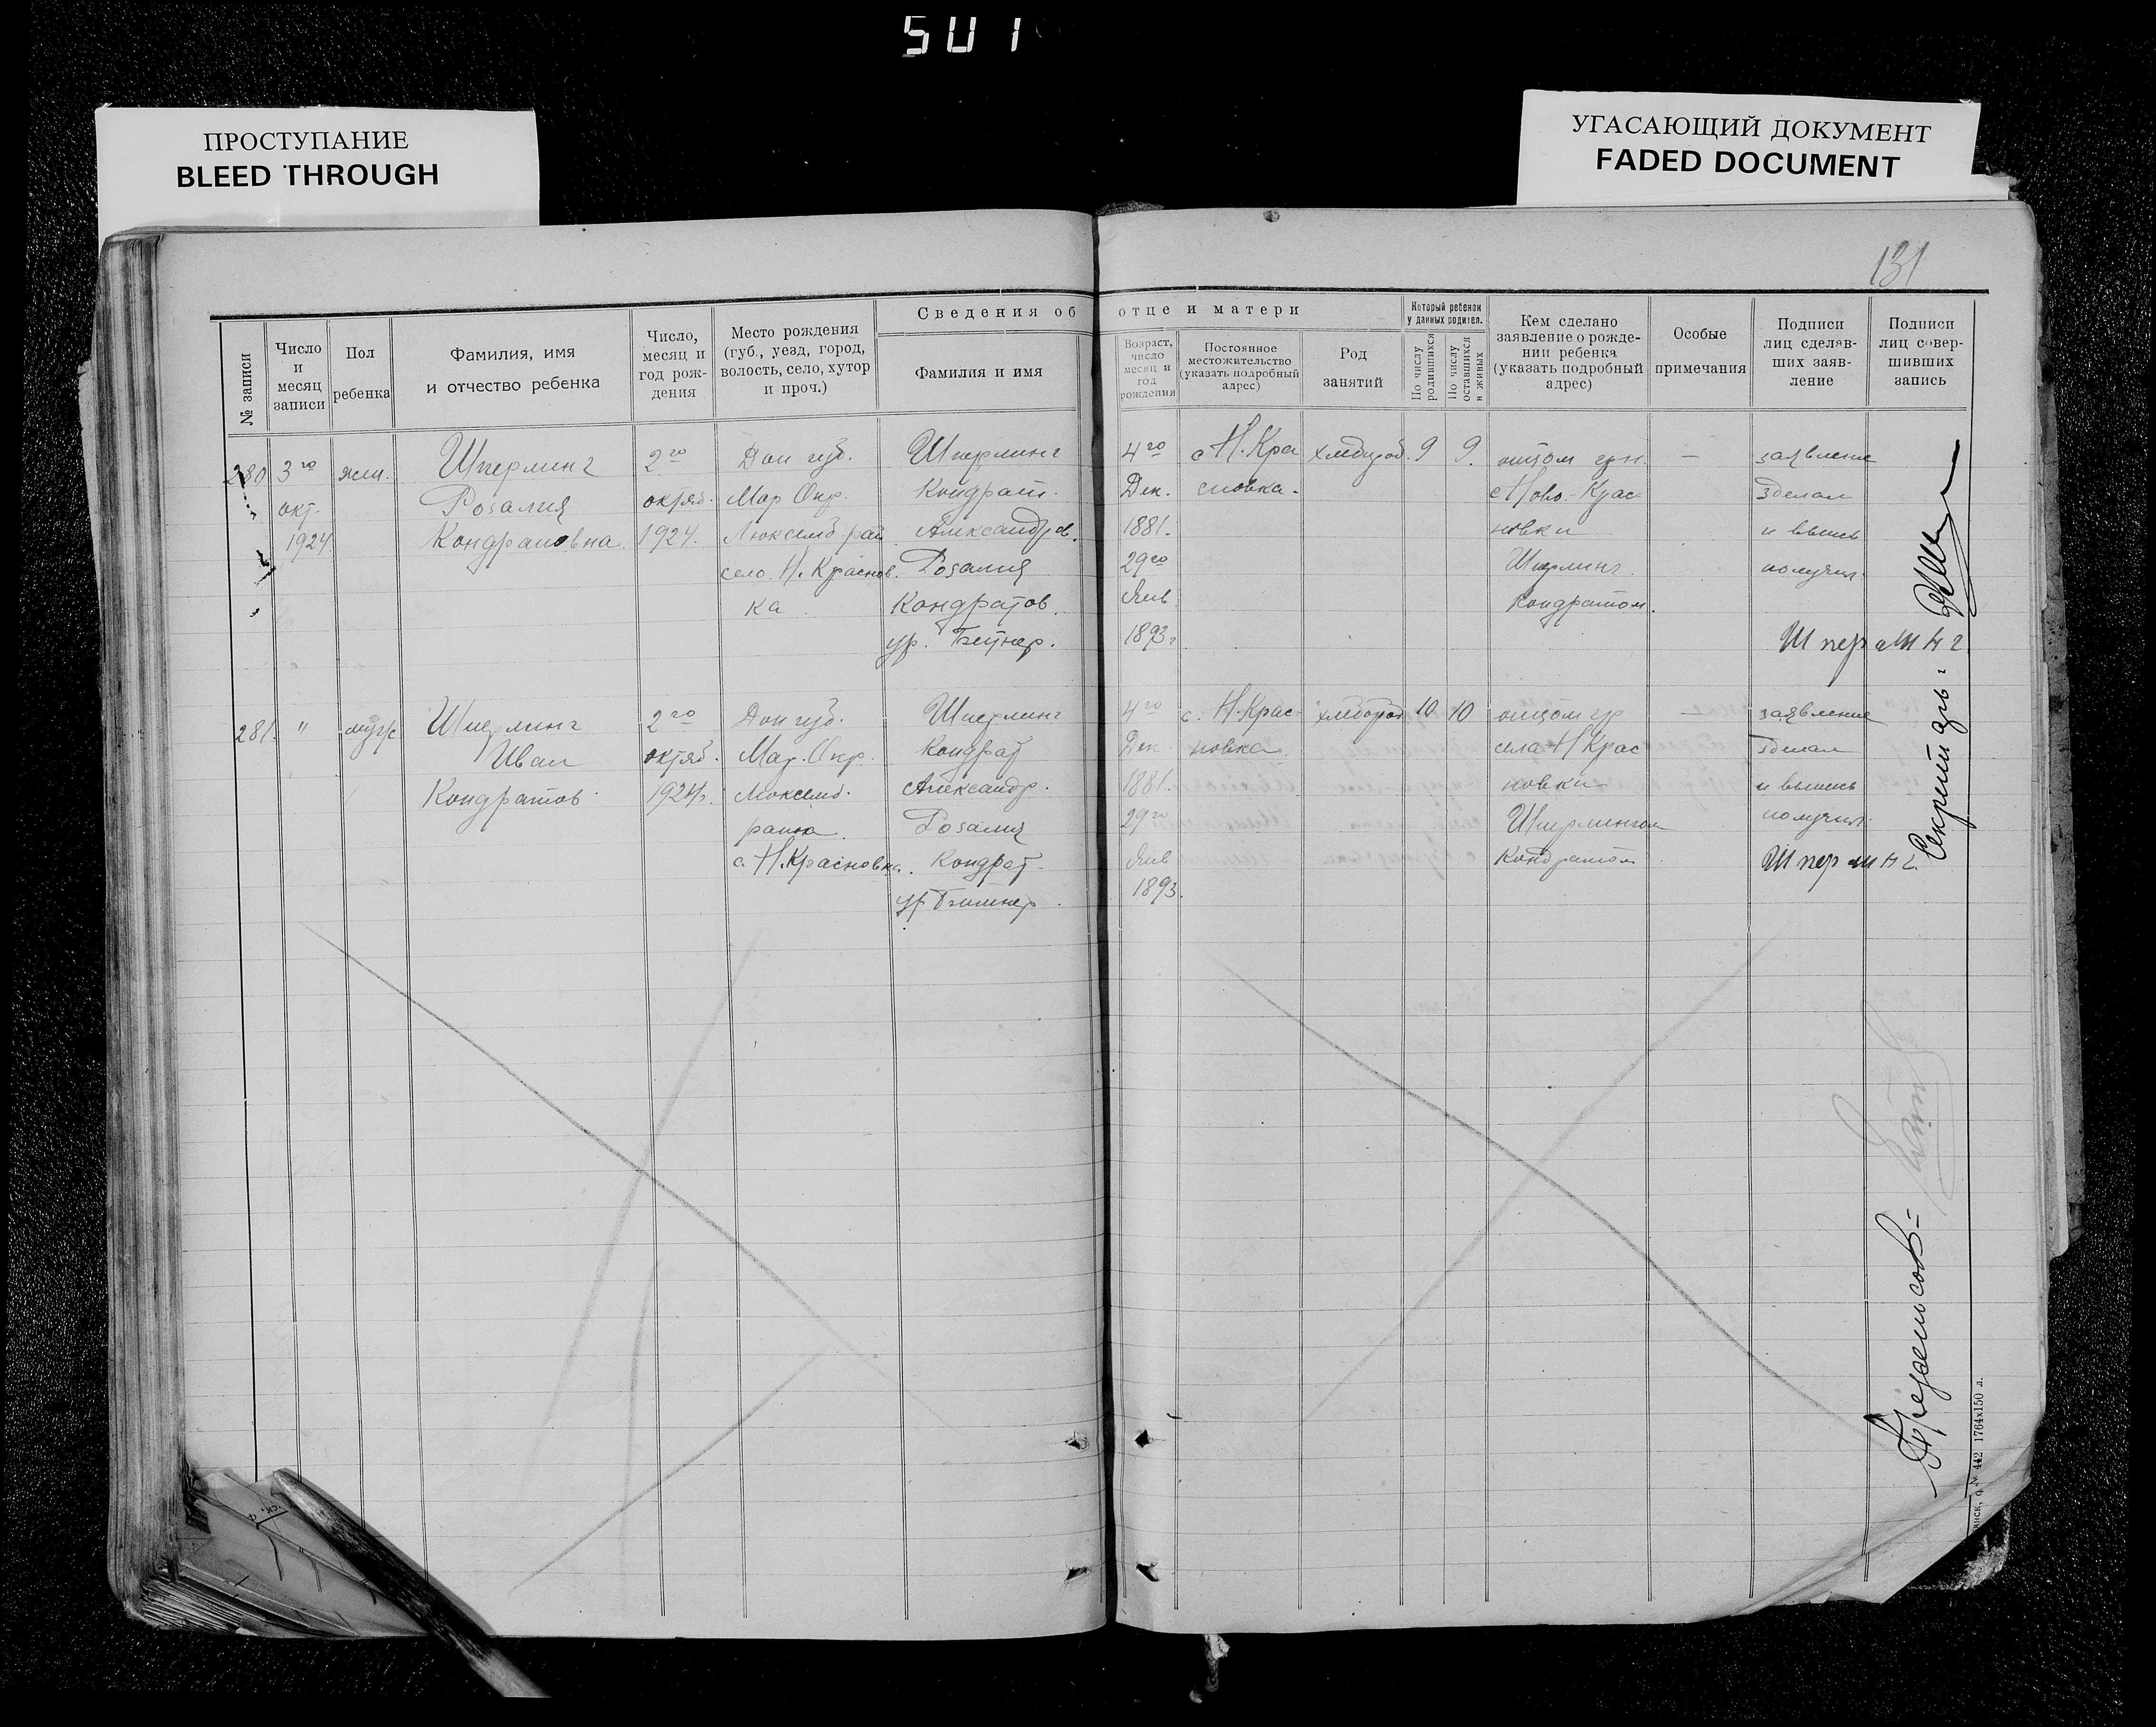 501
ПРОСТУПАНИЕ
BLEED THROUGH
УГАСАЮЩИЙ ДОКУМЕНТ
FADED DOCUMENT
131
№ записи
Число
и
месяц
записи
Пол
ребенка
Фамилия, имя
и отчество ребенка
Число,
месяц и
год рож-
дения
Место рождения
(губ., уезд, город,
волость, село, хутор
и проч.)
Сведения об отце и матери
Фамилия и имя
Возраст,
число
месяц и
год
рождения
Постоянное
местожительство
(указать подробный
адрес)
Род
занятий
Который ребенок
у данных родител.
По числу
родившихся
По числу
оставшихся
в живых
Кем сделано
заявление о рожде-
нии ребенка
(указать подробный
адрес)
Особые
примечания
Подписи
лиц сделав-
ших заяв-
ление
Подписи
лиц совер-
шивших
запись
280
3го
окт.
1924
жен.
Шперлинг
Розалия
Кондратовна
2го
октяб.
1924.
Дон губ.
Мар Окр.
Люксемб. рай
село. Н. Краснов.
ка
Шперлинг
Кондрат.
Александров.
Розалия
Кондратов.
ур. Бейнер.
4го
Дек.
1881.
29го
Янв
1893г
с Н. Кра
сновка.
хлебороб.
9
9.
отцом грн.
с Ново-Крас-
новки
Шперлинг
Кондратом.
—
заявление
зделал
и выпись
получил.
Шперлинг
281.
"
мужс
Шперлинг
Иван
Кондратов
2го
октяб.
1924г.
Дон губ.
Мар. Окр.
Люксемб.
раиона.
с. Н. Красновка.
Шперлинг
Кондрат
Александр.
Розалия
Кондрат.
ур Бейнер.
4го
Дек.
1881.
29го
Янв
1893.
с. Н. Крас-
новка.
хлебороб
10
10
отцом гр
села Н Крас
новки
Шперлингом
Кондратом
—
заявление
зделал
и выпись
получил.
Шперлинг
Секретарь.
№ 442 1764x150 л.